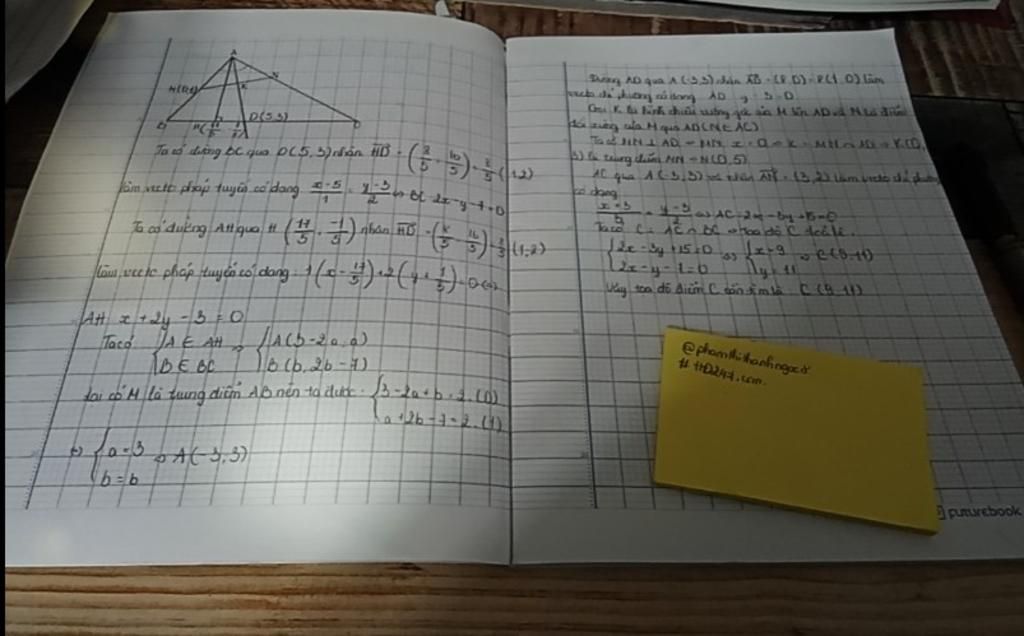 A
N
K
D(5,3)
Ta có đường BC qua D(5,3) nhận HD = (8/5; 16/5) = 8/5 (1,2)
làm vectơ pháp tuyến có dạng (x-5)/1 = (y-3)/2 ⇔ BC 2x-y-7=0
Ta có đường AH qua H (17/5, -1/5) nhận HD = (8/5; 16/5) = 8/5 (1,2)
làm vectơ pháp tuyến có dạng 1(x - 17/5) + 2(y + 1/5) = 0 ⇔
AH x + 2y - 3 = 0
Ta có { A ∈ AH ⇒ { A(3-2a, a)
B ∈ BC B(b, 2b-7)
Lại có M là trung điểm AB nên ta được { 3-2a+b = 2.(0)
a+2b-7 = 2.(1)
⇔ { a=3 ⇒ A(-3,3)
b=b
Đường AD qua A(-3,3) nhận AD = (8,0) = 8(1,0) làm
vectơ chỉ phương có dạng AD y-3=0
Gọi K là hình chiếu vuông góc của M lên AD và N là điểm
đối xứng của M qua AD (N ∈ AC)
Ta có MN ⊥ AD ⇒ MN: x=0 ⇒ K = MN ∩ AD ⇒ K(0,
3) là trung điểm MN ⇒ N(0,5)
AC qua A(-3,3) và nhận AN = (3,2) làm vectơ chỉ phương
có dạng
(x+3)/3 = (y-3)/2 ⇔ AC 2x-3y+15=0
Ta có C = AC ∩ BC ⇒ toạ độ C
{ 2x-3y+15=0 ⇔ { x=9 ⇒ C(9,11)
2x-y-7=0 y=11
Vậy toạ độ điểm C cần tìm là C(9,11)
@phamthithanhngocd
# HD247.com.
futurebook